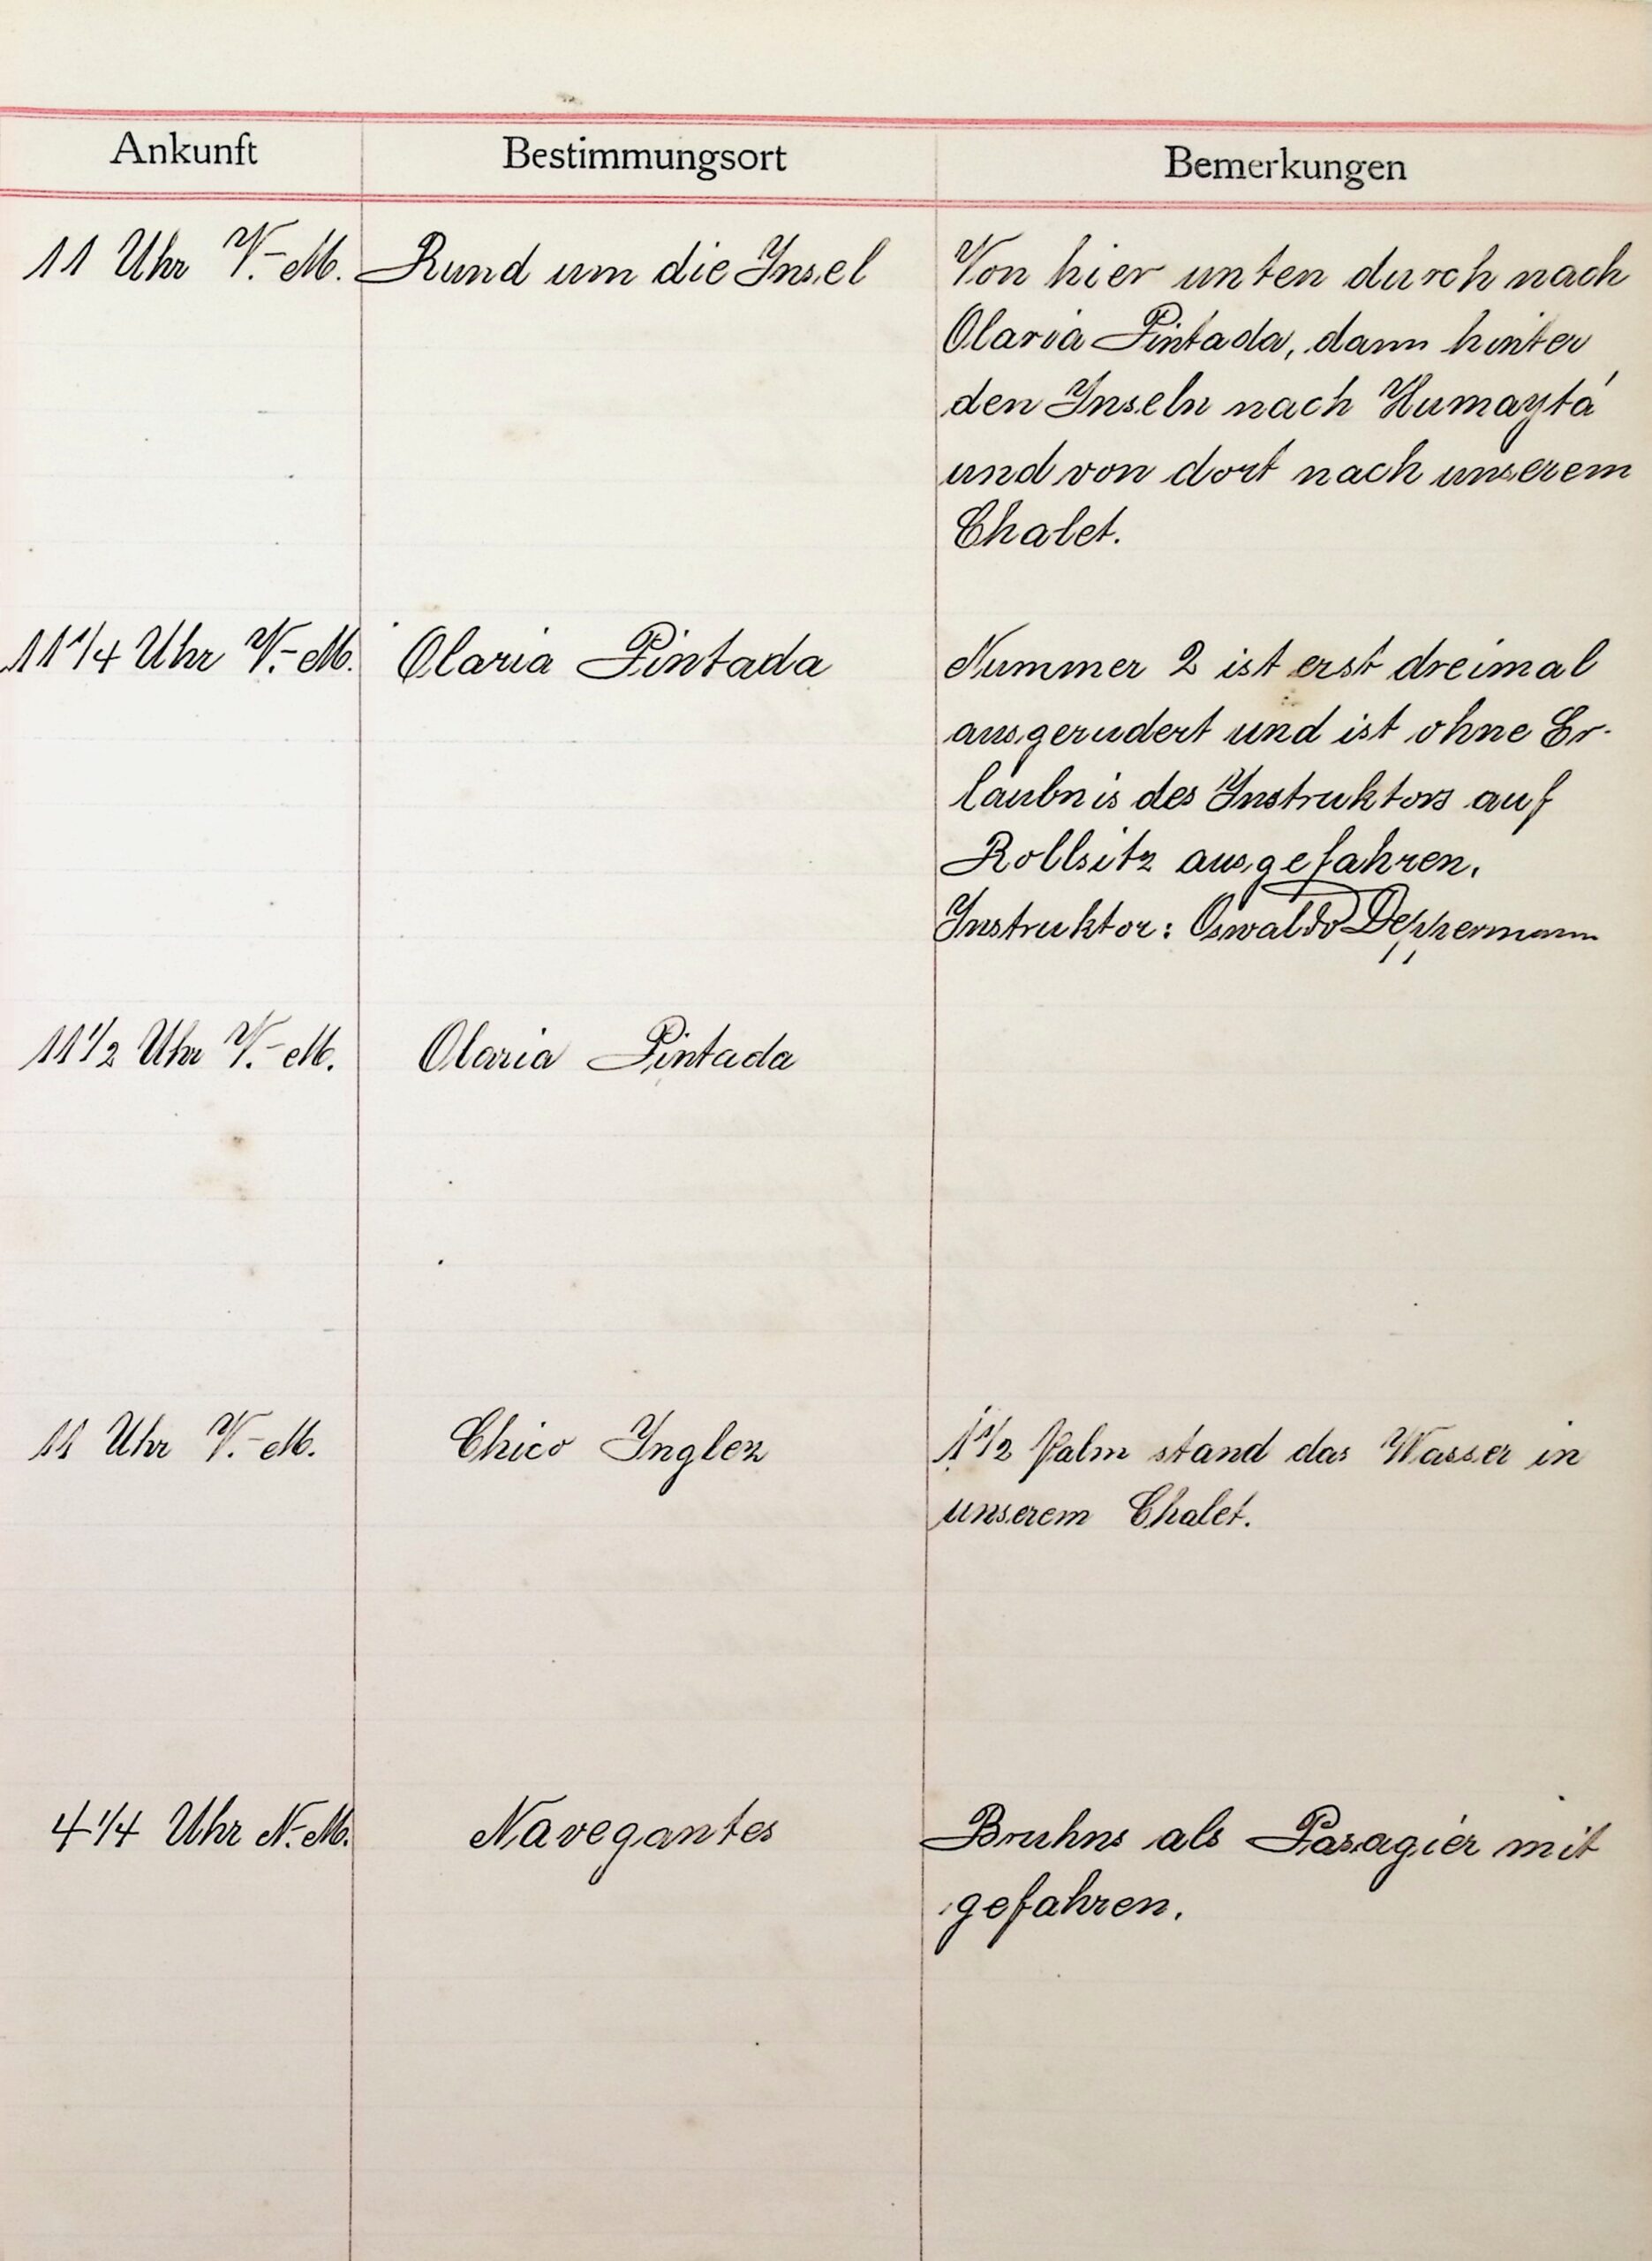 Ankunft Bestimmungsort Bemerkungen
11 Uhr V.-M. Rund um die Insel Von hier unten durch nach
Olaria Pintada, dann hinter
den Inseln nach Humaytá
und von dort nach unserem
Chalet.
11 1/4 Uhr V.-M. Olaria Pintada Nummer 2 ist erst dreimal
ausgerudert und ist ohne Er-
laubnis des Instruktors auf
Rollsitz ausgefahren.
Instruktor: Oswaldo Deppermann
11 1/2 Uhr V.-M. Olaria Pintada
11 Uhr V.-M. Chico Inglez 1 1/2 Palm stand das Wasser in
unserem Chalet.
4 1/4 Uhr N.-M. Navegantes Bruhns als Pasagier mit
gefahren.